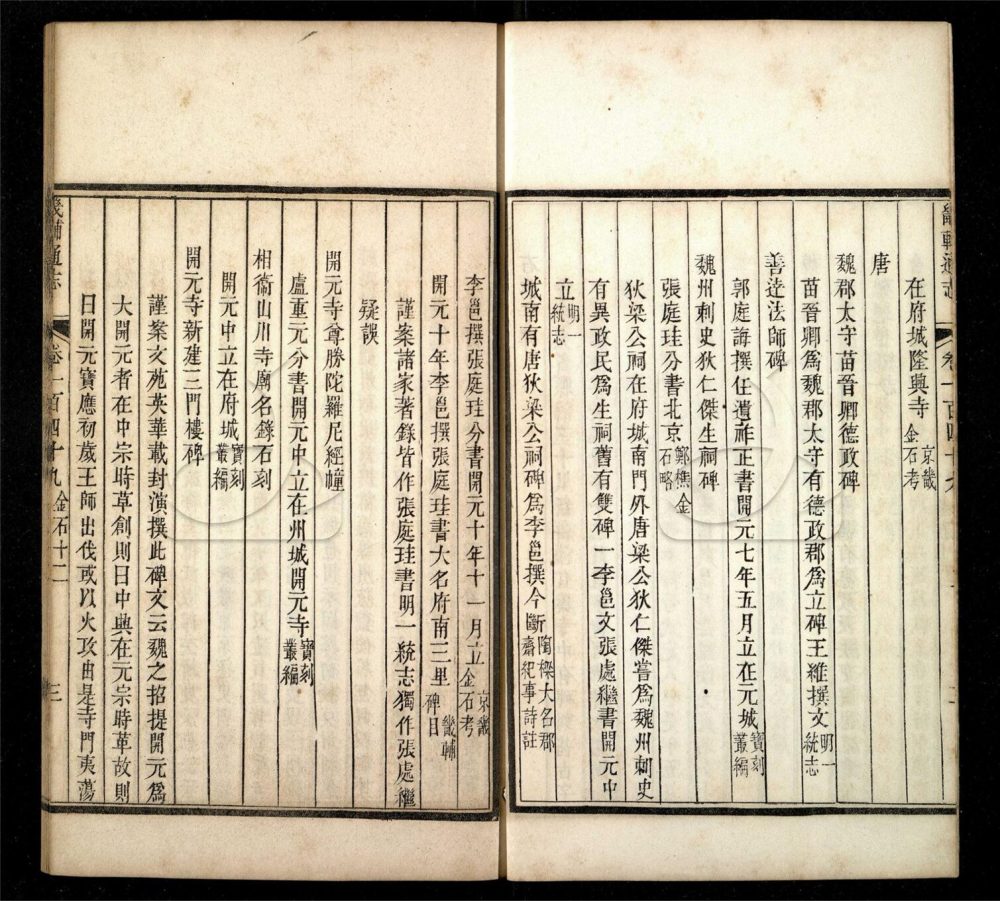 畿輔通志
卷一百四十九
在府城隆興寺京畿金石考
唐
魏郡太守苗晉卿德政碑
苗晉卿爲魏郡太守有德政郡爲立碑王維撰文明一統志
善達法師碑
郭庭誨撰任遺祚正書開元七年五月立在元城寶刻叢編
魏州刺史狄仁傑生祠碑
張庭珪分書北京鄭樵金石略
狄梁公祠在府城南門外唐梁公狄仁傑嘗爲魏州刺史
有異政民爲生祠舊有雙碑一李邕文張處繼書開元中
立明一統志
城南有唐狄梁公祠碑爲李邕撰今斷陶樑大名郡齋紀事詩註
李邕撰張庭珪分書開元十年十一月立京畿金石考
開元十年李邕撰張庭珪書大名府南三里畿輔碑目
謹案諸家著錄皆作張庭珪書明一統志獨作張處繼
疑誤
開元寺尊勝陀羅尼經幢
盧重元分書開元中立在州城開元寺寶刻叢編
相衞山川寺廟名錄石刻
開元中立在府城寶刻叢編
開元寺新建三門樓碑
謹案文苑英華載封演撰此碑文云魏之招提開元爲
大開元者在中宗時草創則日中興在元宗時革故則
日開元寶應初歲王師出伐或以火攻由是寺門夷蕩
畿輔通志
卷一百四十九 金石十二
三